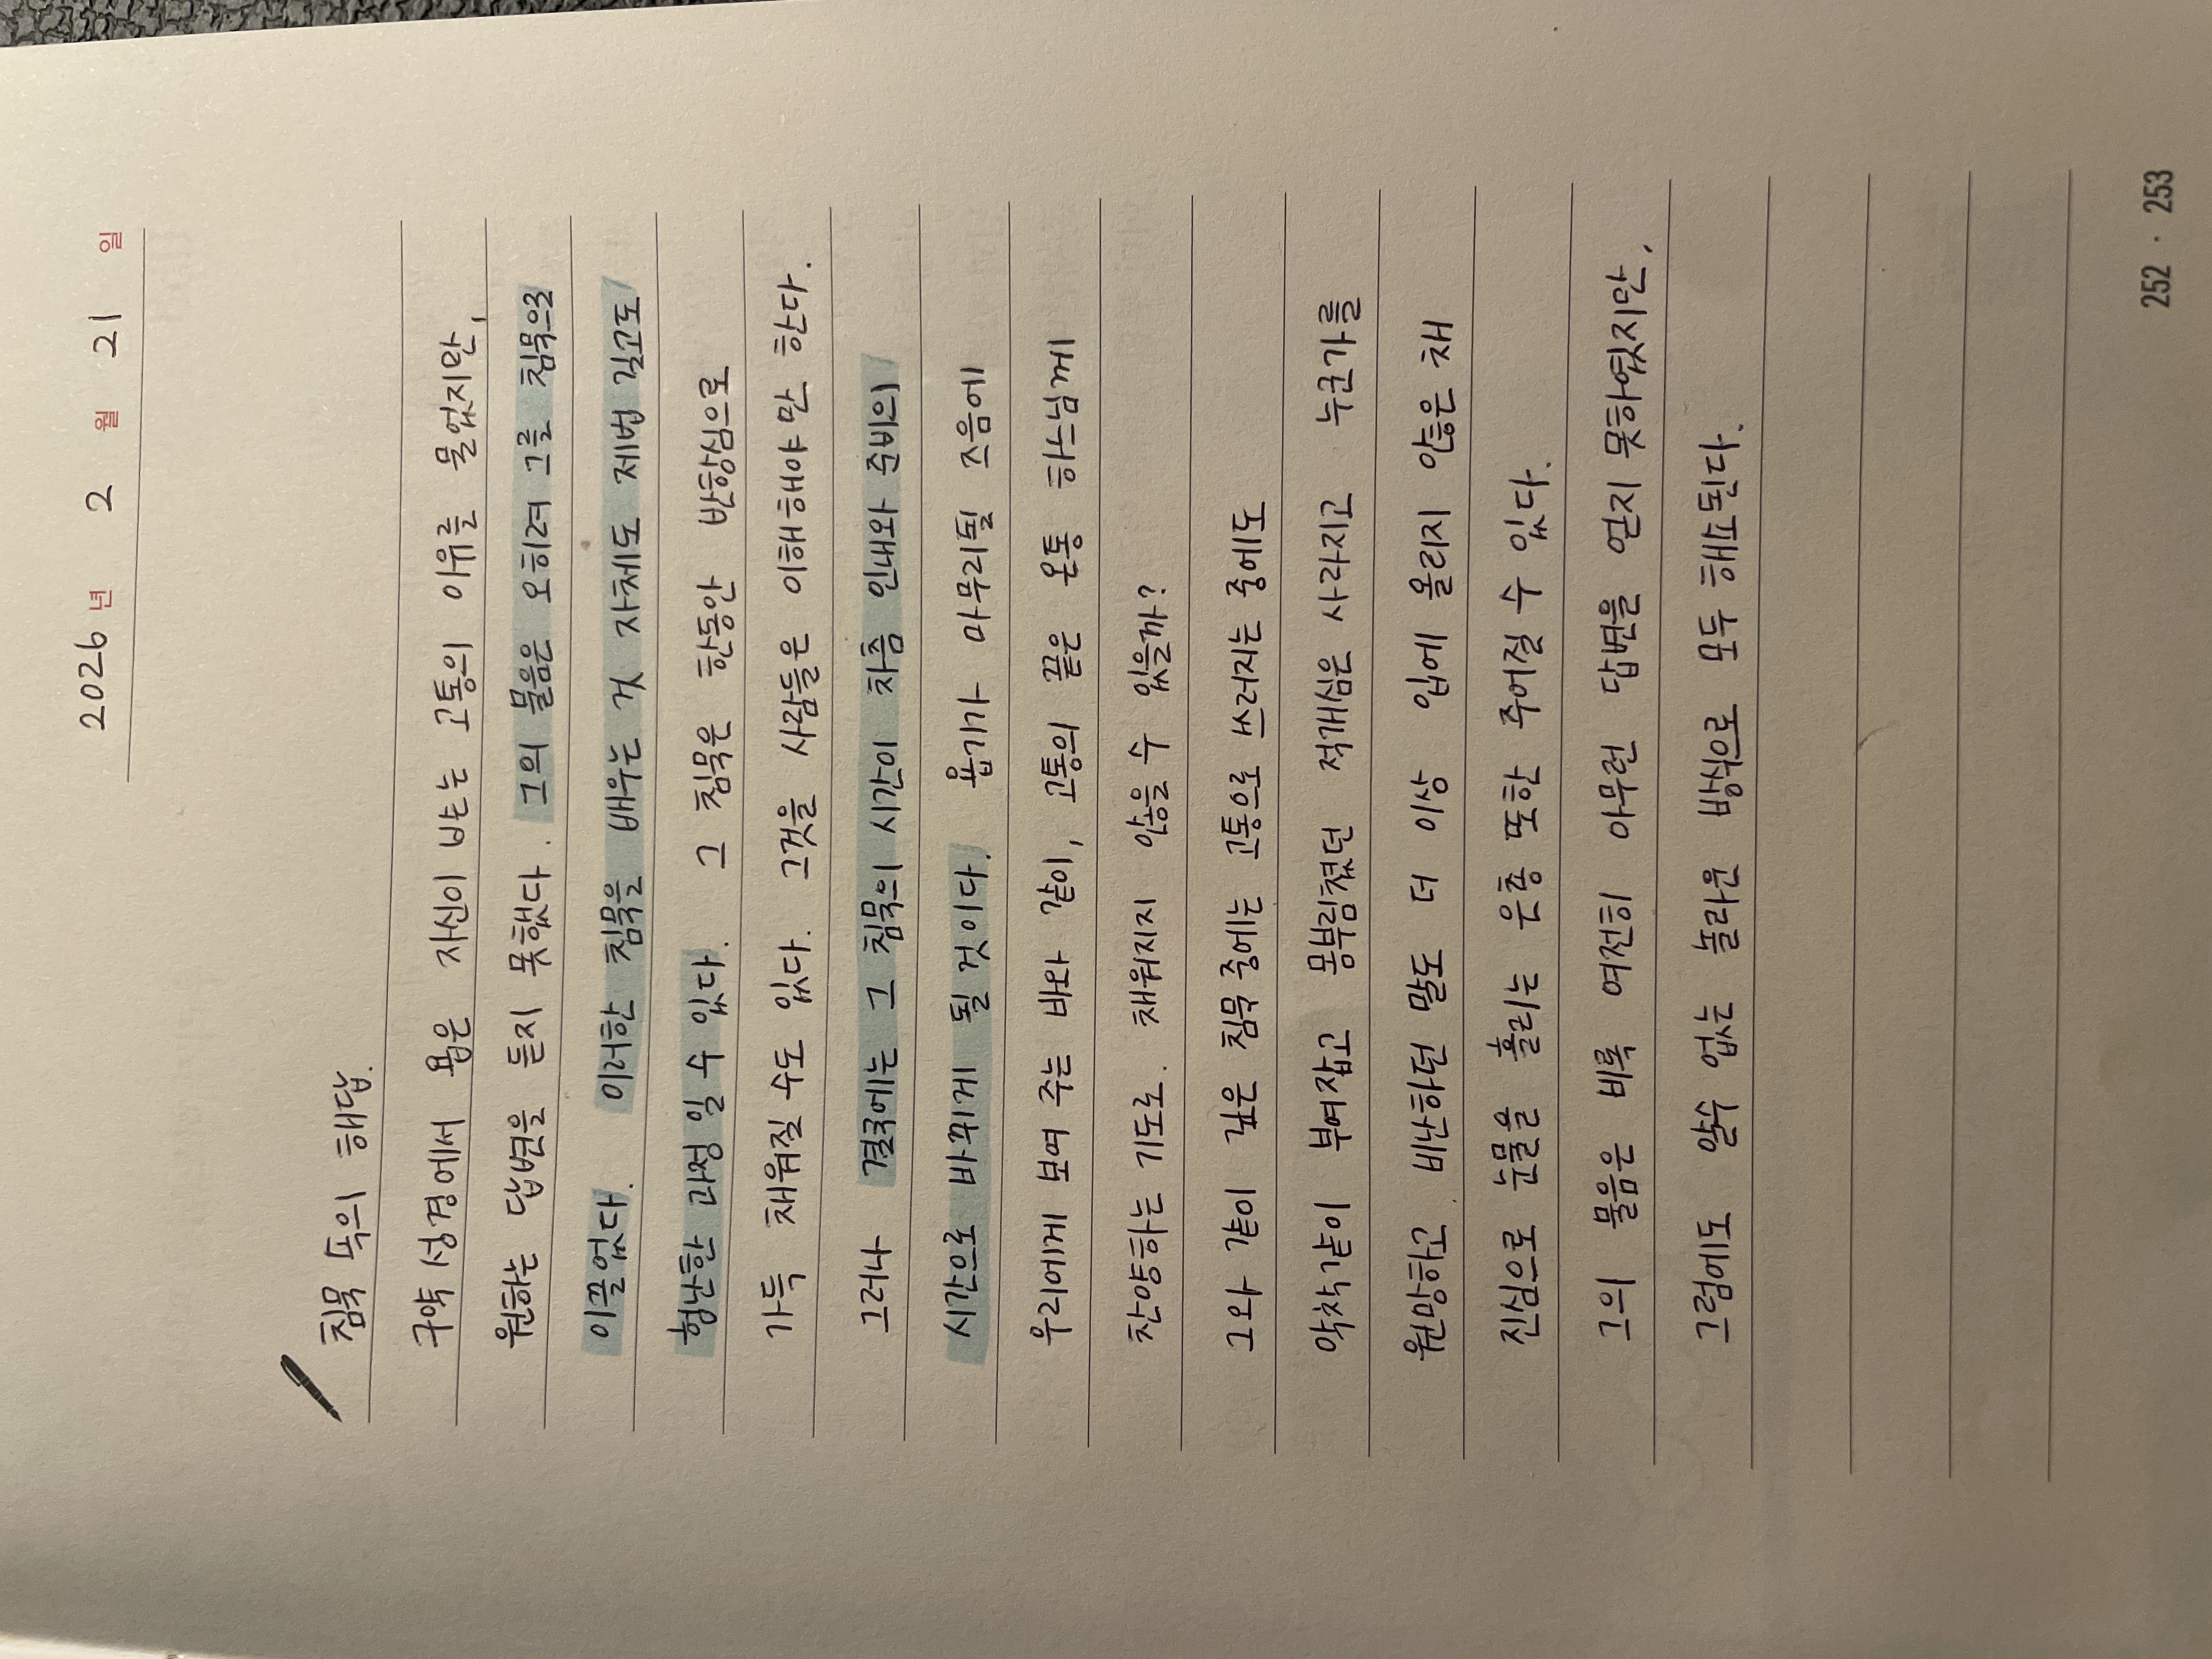 2026년 2월 21일
침묵 속의 해답.
구약 성경에서 욥은 자신이 받는 고통의 이유를 물었지만,
원하는 답변을 듣지 못했다. 그의 물음은 오히려 그를 침묵으로
이끌었다. 이러한 침묵을 배우는 것 자체도 제법 길고도
험난한 과정일 수 있다. 그 침묵은 한동안 반항심으로
가득 채워질 수도 있다. 그것을 사람들은 이해해야만 한다.
그러나 결국에는 그 침묵의 시간이 차츰 인내와 준비의
시간으로 바뀌게 될 것이다. 욥기가 마무리될 즈음에
우리에게 보여 주는 바와 같이, 고통의 끝은 온통 하느님께
찬양하는 기도로. 채워지지 않을 수 있을까?
그와 같이 깊은 침묵 중에는 고통으로 쓰러지는 중에도
악착같이 부여잡고 몸부림쳤던 적개심은 사라지고 누군가를
원망하고. 비난하던 말도 더 이상 입에 올리지 않은 채
진심으로 눈물을 흘리는 은총 또한 주어질 수 있다.
그의 물음은 비록 여전히 아무런 답변을 얻지 못하였지만,
그럼에도 알수 없는 놀라운 방식으로 모두 해소된다.
252 · 253